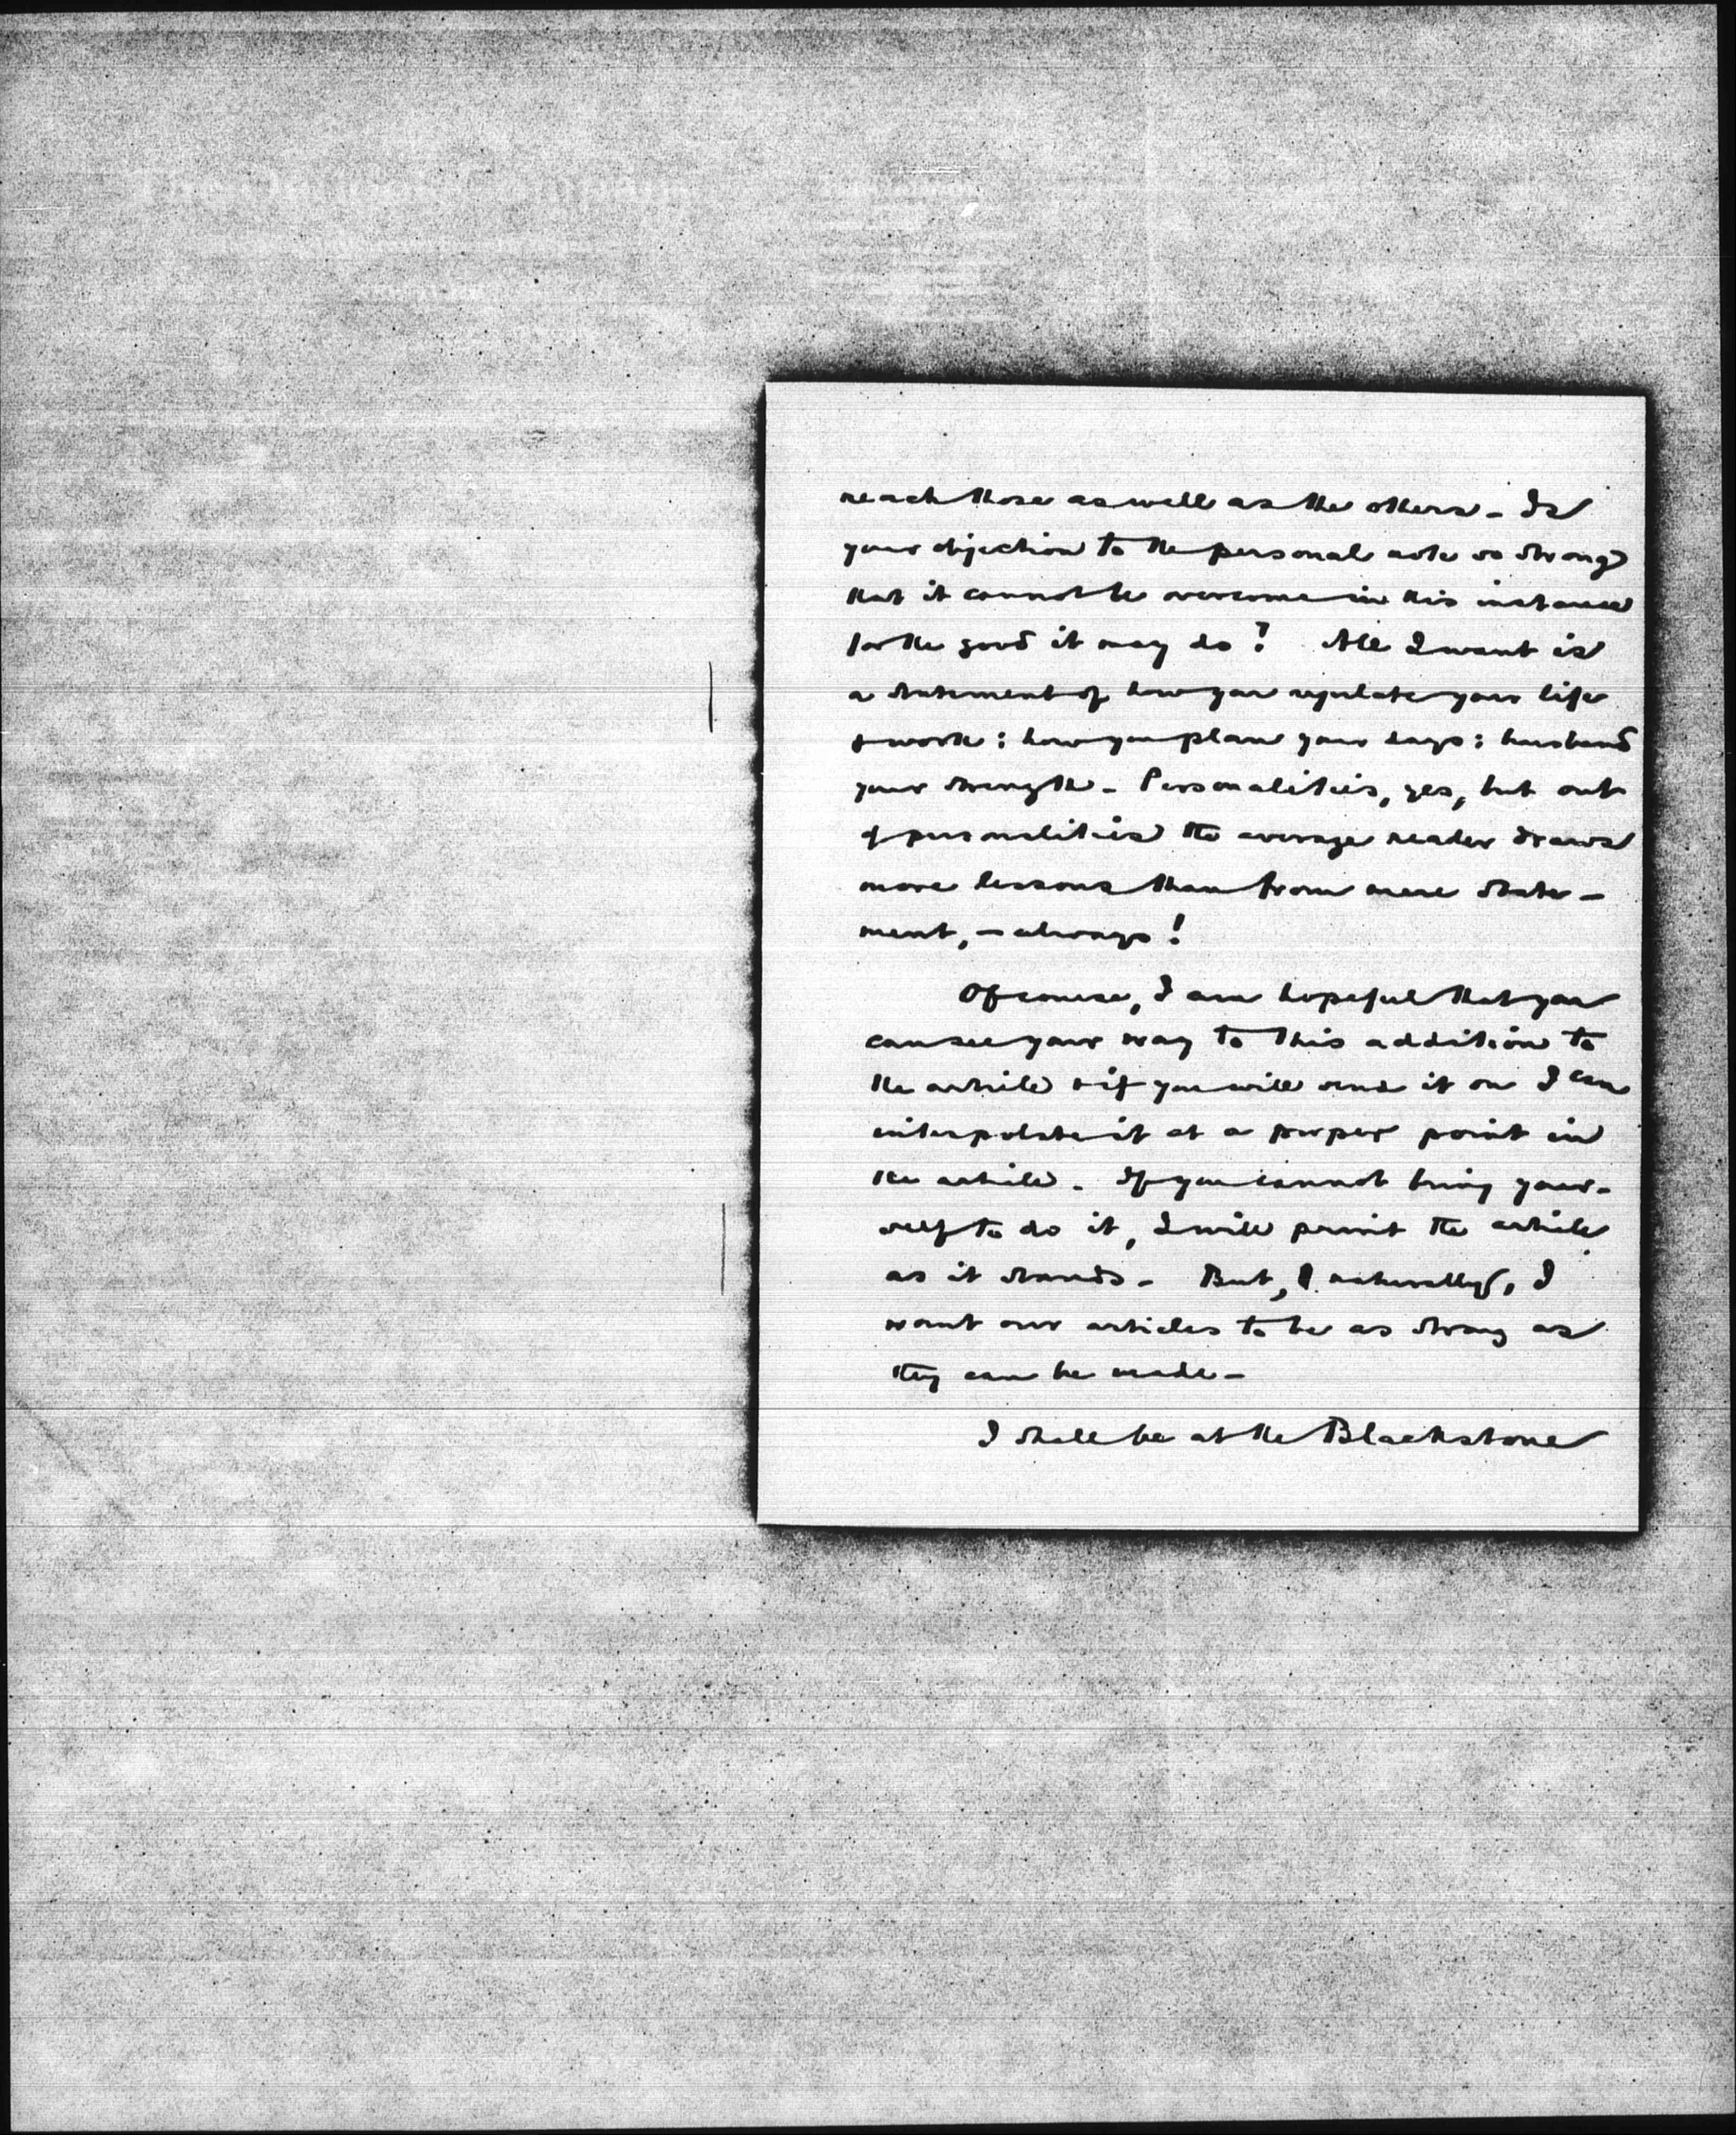 reach those as well as the others - Is
your objection to the personal note so strong
that it cannot be overcome in this instance
for the good it may do? All I want is
a statement of how you regulate your life
+ work: how you plan your days: husband
your strength - Personalities, yes, but out
of personalities the average reader draws
more lessons than from mere state-
ment, - always!
Of course, I am hopeful that you
can see your way to this addition to
the article + if you will send it on I can
interpolate it at a proper point in
the article. If you cannot bring your-
self to do it, I will print the article
as it stands - But, naturally, I
want our articles to be as strong as
they can be made -
I shall be at the Blackstone